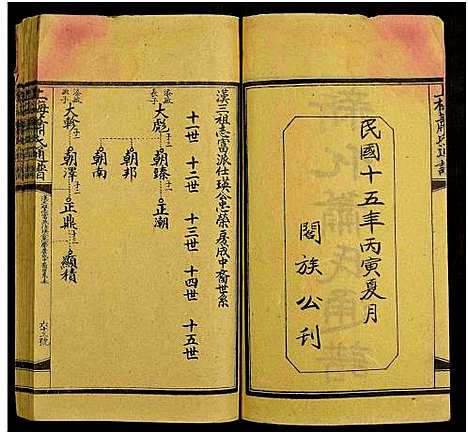 民國十五年丙寅夏月
闔族公刊
漢三祖志富派仕瑛公忠榮房成中裔世系
十一世 十二世 十三世 十四世 十五世
添敏長子 大彪 朝臻 正潮
朝邦
朝南
大幹 朝澤 正鼎 顯積